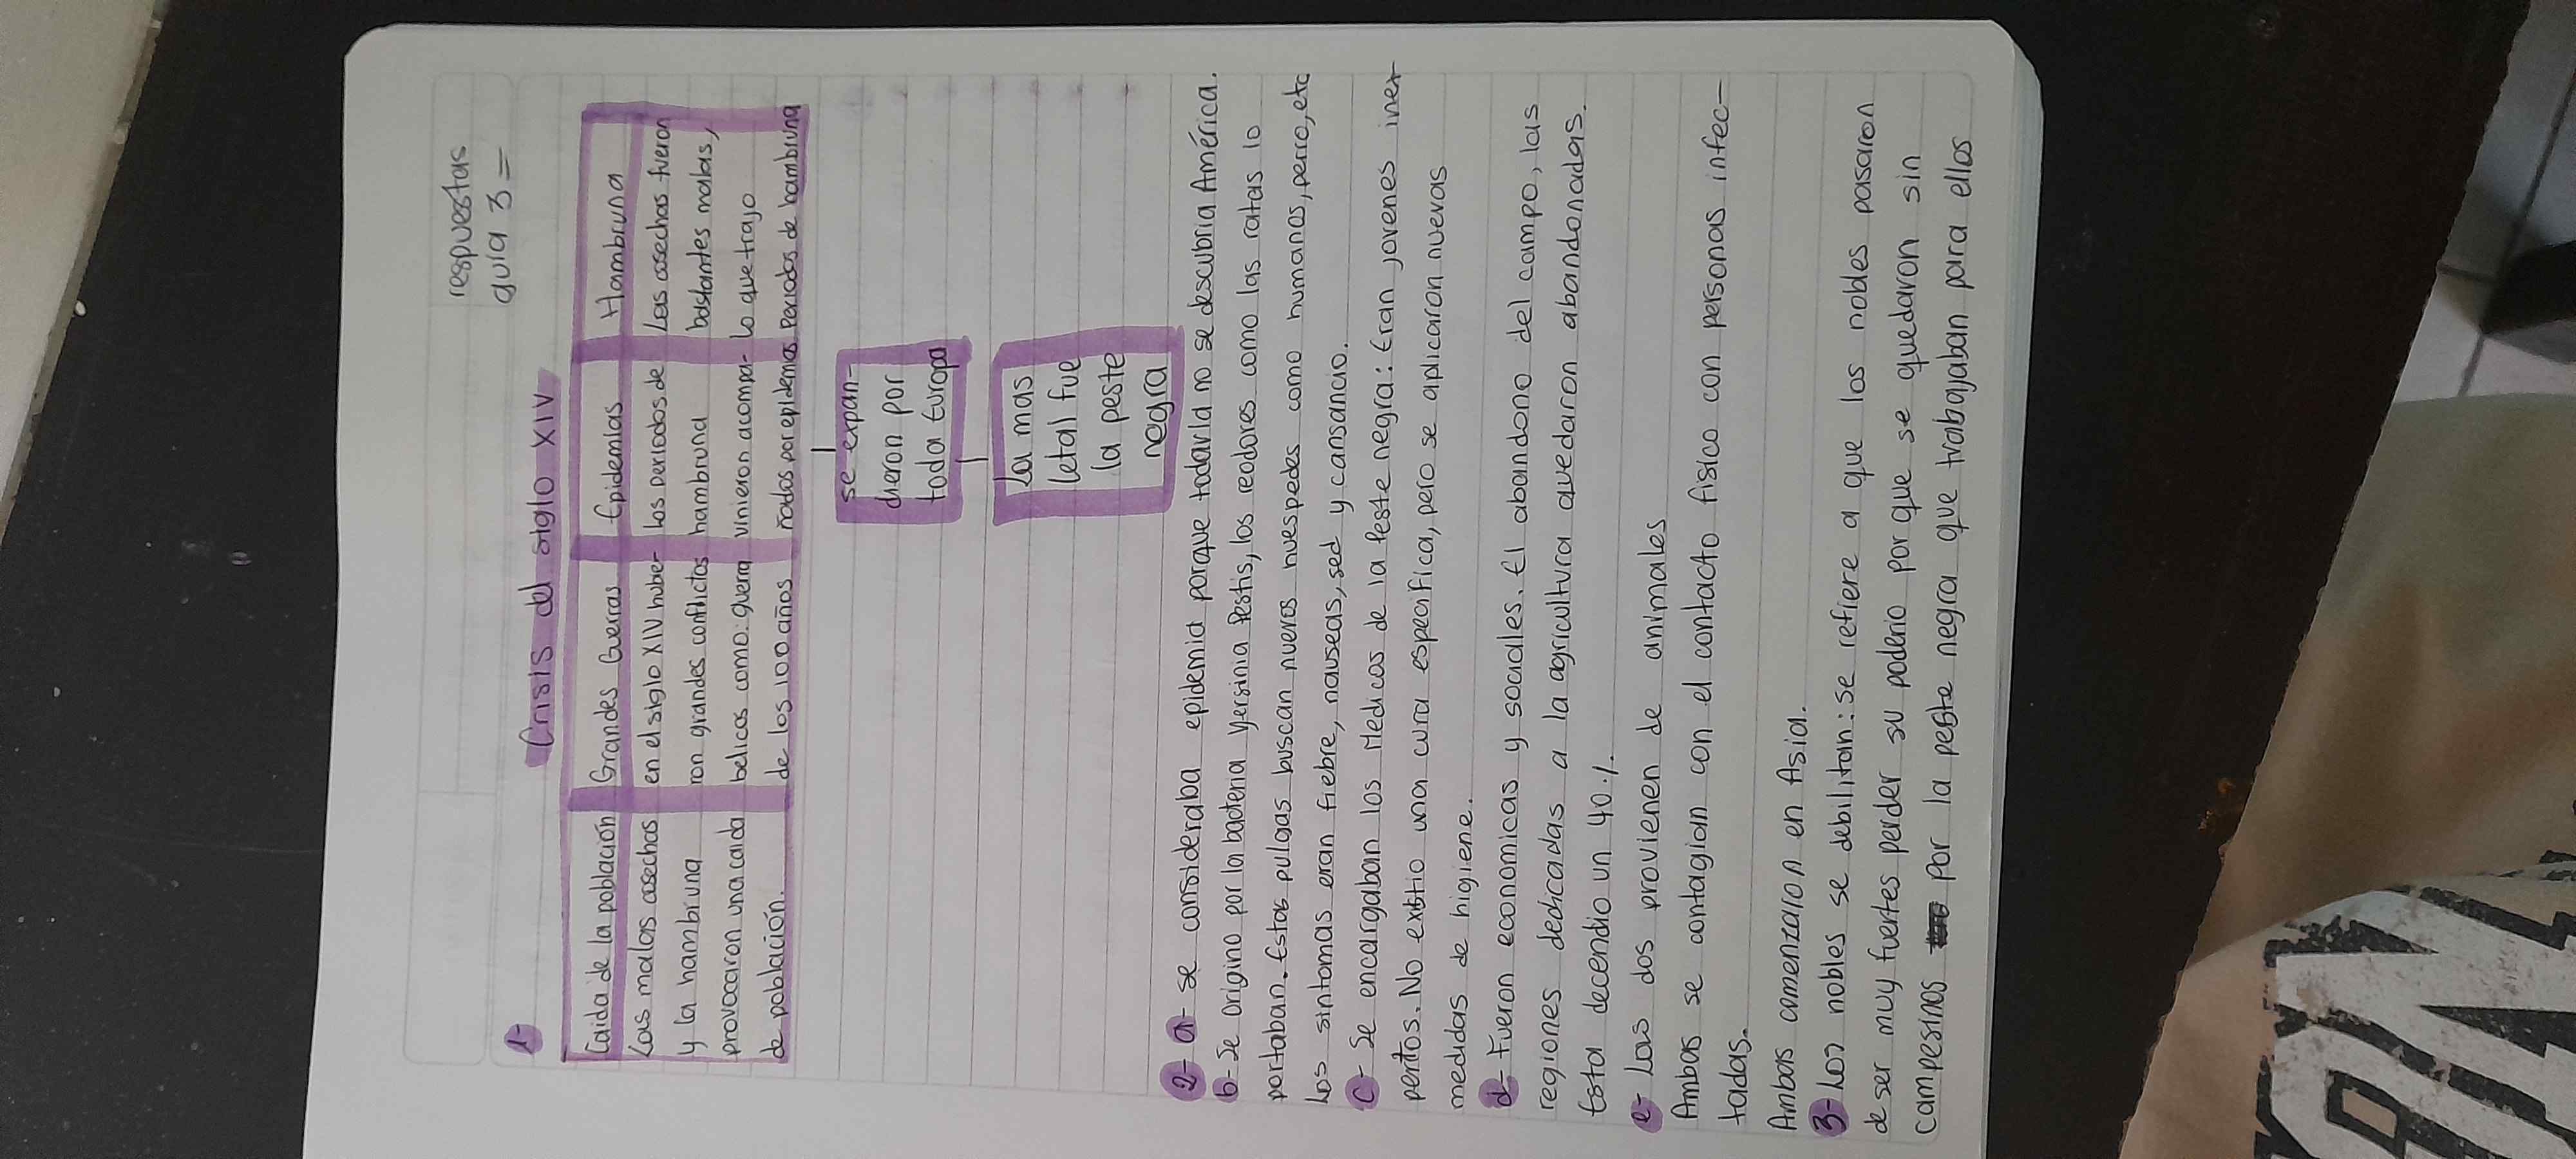 respuestas
guía 3=
Crisis del siglo XIV
1-
Caida de la población
Las malas cosechas
y la hambruna
provocaron una caida
de población.
Grandes Guerras
en el siglo XIV hubie-
ron grandes conflictos
belicos como: guerra
de los 100 años
Epidemias
Los periodos de
hambruna
vinieron acompa-
ñados por epidemias
Hambruna
Las cosechas fueron
bastantes malas,
lo que trajo
periodos de hambruna
se expan-
dieron por
toda Europa
La mas
letal fue
la peste
negra
2- a- se consideraba epidemia porque todavia no se descubria América.
b- Se origino por la bacteria Yersinia Pestis, los roedores como las ratas lo
portaban. Estas pulgas buscan nuevos huespedes como humanos, perro, etc
Los sintomas eran fiebre, nauseas, sed y cansancio.
c- Se encargaban los Medicos de la Peste negra: Eran jovenes inex
pertos. No existio una cura especifica, pero se aplicaron nuevas
medidas de higiene.
d- Fueron economicas y sociales. El abandono del campo, las
regiones dedicadas a la agricultura quedaron abandonadas.
Esta decendio un 40%.
e- Las dos provienen de animales
Ambas se contagian con el contacto fisico con personas infec-
tadas.
Ambas comenzaron en Asia.
3- Los nobles se debilitan: se refiere a que los nobles pasaron
de ser muy fuertes perder su poderio por que se quedaron sin
campesinos por la peste negra que trabajaban para ellos